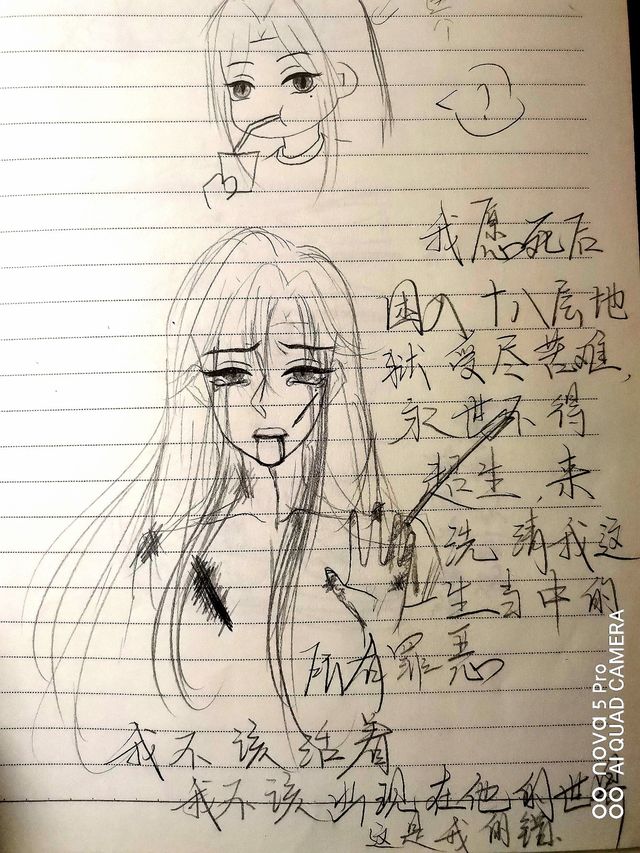 我愿死后
困入十八层地
狱受尽苦难，
永世不得
超生，来
洗请我这
一生当中的
所有罪恶
我不该活着
我不该出现在他的世界
这是我的错.
nova 5 Pro
AI QUAD CAMERA